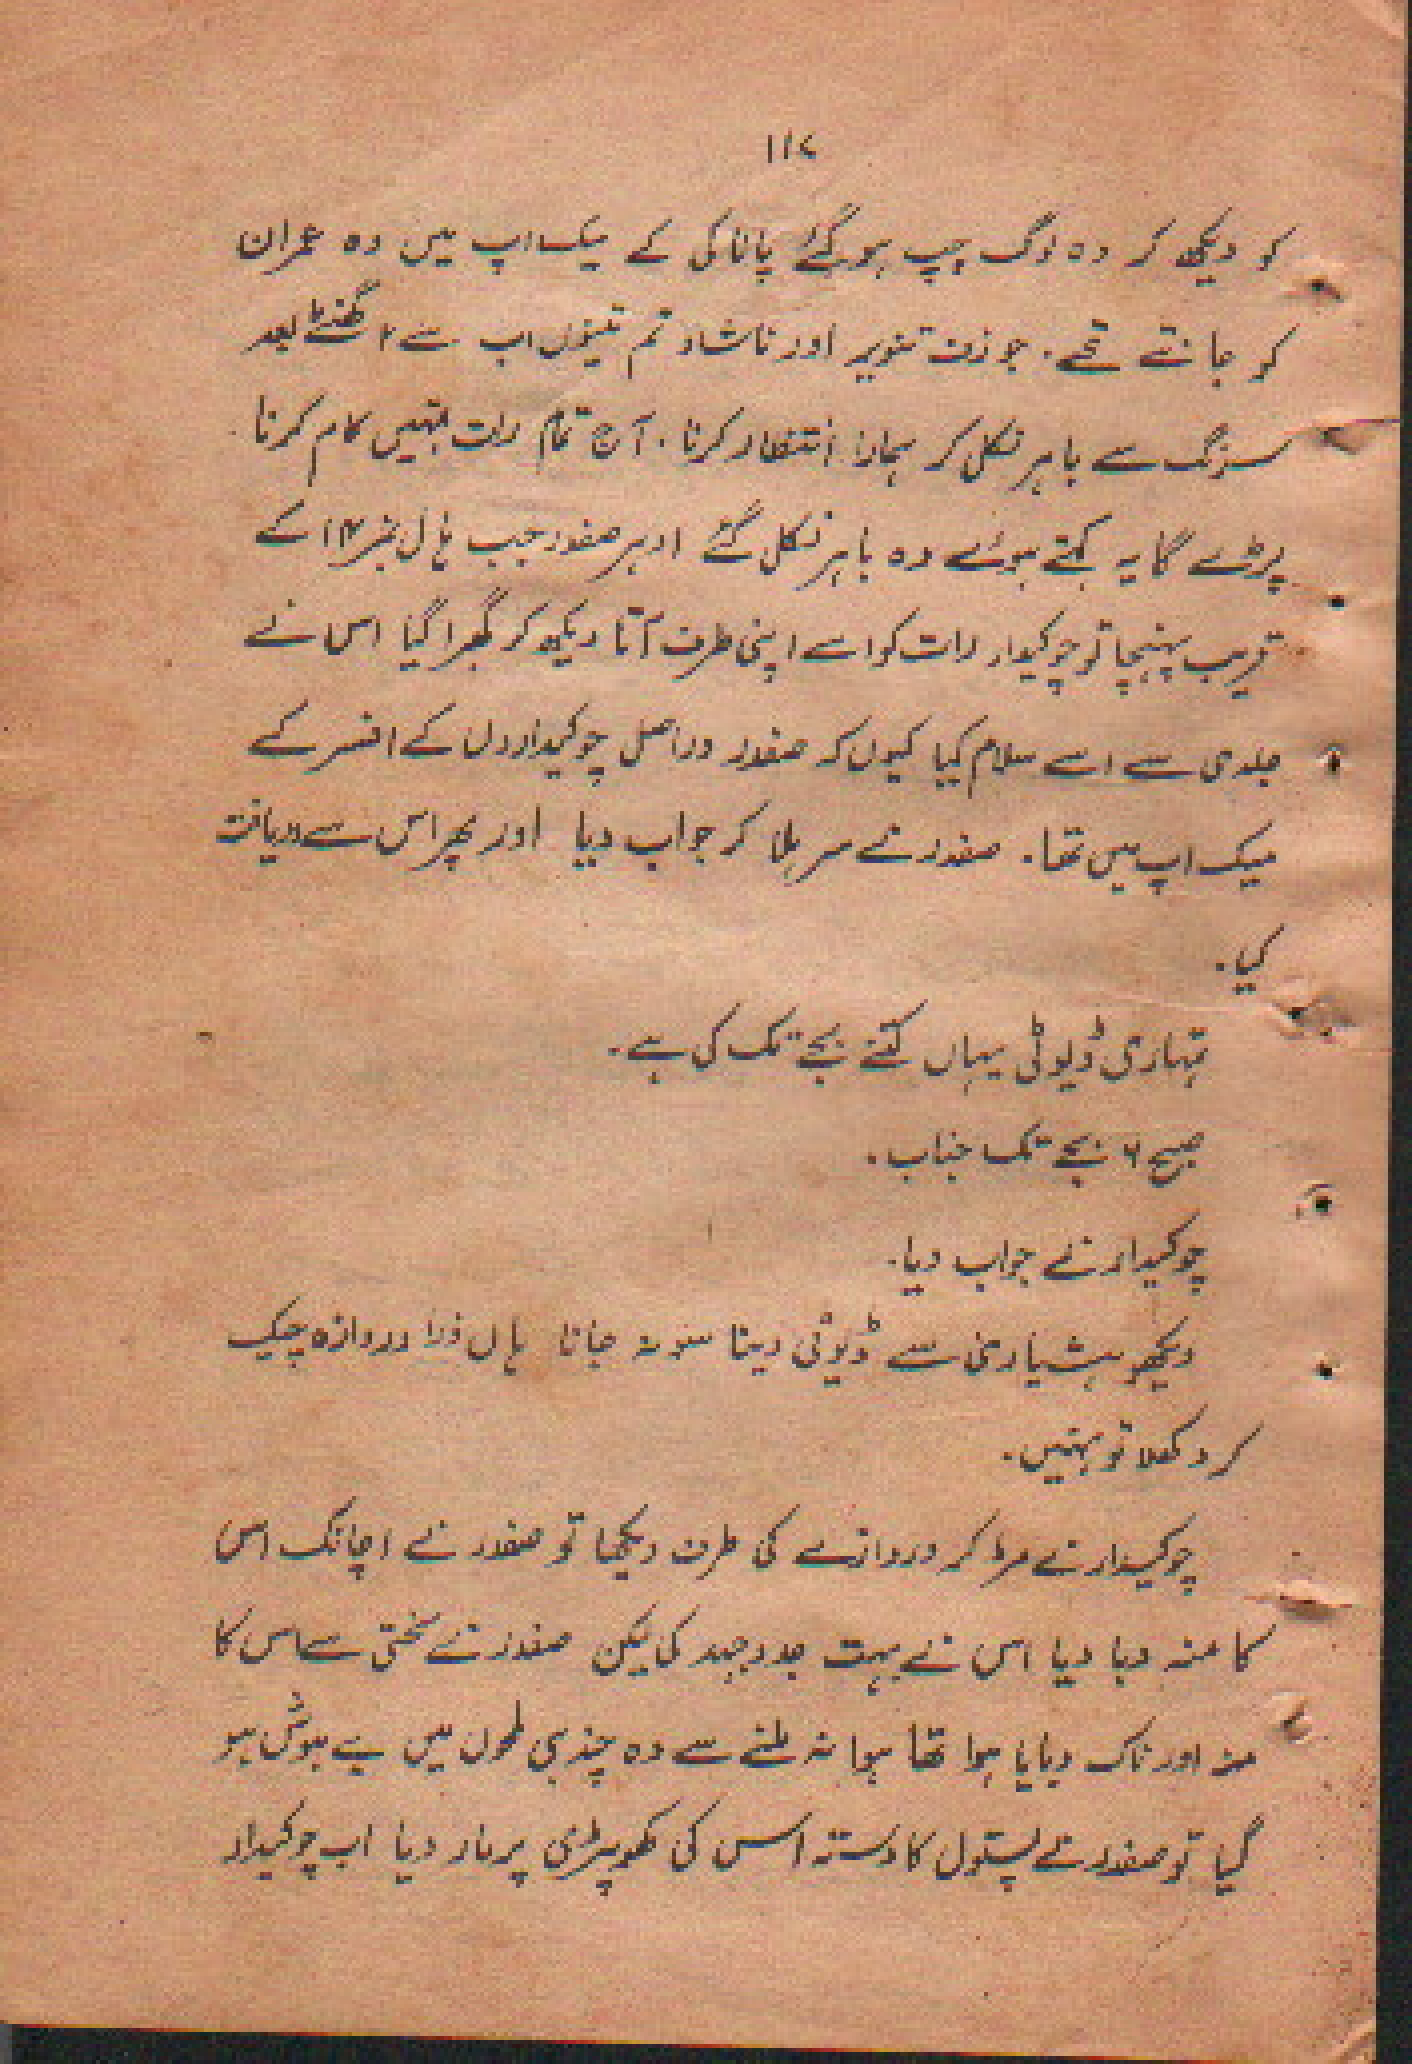 ۱۱۷
کو دیکھ کر وہ لوگ چپ ہو گئے پاناکی کے میک اپ میں وہ عمران
کو جانتے تھے۔ جوزف تنویر اور ناشاد تم تینوں اب سے ۲ گھنٹے بعد
سرنگ سے باہر نکل کر ہمارا انتظار کرنا۔ آج تمام رات تمہیں کام کرنا
پڑے گا یہ کہتے ہوئے وہ باہر نکل گئے ادہر صفدر جب ہال نمبر ۱۲ کے
قریب پہنچا تو چوکیدار رات کو اسے اپنی طرف آتا دیکھ کر گھبرا گیا اس نے
جلدی سے اسے سلام کیا کیوں کہ صفدر دراصل چوکیداروں کے افسر کے
میک اپ میں تھا۔ صفدر نے سر ہلا کر جواب دیا اور پھر اس سے دریافت
کیا۔
تمہاری ڈیوٹی یہاں کتنے بجے تک کی ہے۔
صبح ۶ بجے تک جناب۔
چوکیدار نے جواب دیا۔
دیکھو ہشیاری سے ڈیوٹی دینا سو نہ جانا ہاں ذرا دروازہ چیک
کرو کھلا تو نہیں۔
چوکیدار نے مڑ کر دروازے کی طرف دیکھا تو صفدر نے اچانک اس
کا منہ دبا دیا اس نے بہت جدوجہد کی لیکن صفدر نے سختی سے اس کا
منہ اور ناک دبایا ہوا تھا ہوا نہ ملنے سے وہ چند ہی لمحوں میں بے ہوش ہو
گیا تو صفدر نے پستول کا دستہ اس کی کھوپڑی پر مار دیا اب چوکیدار